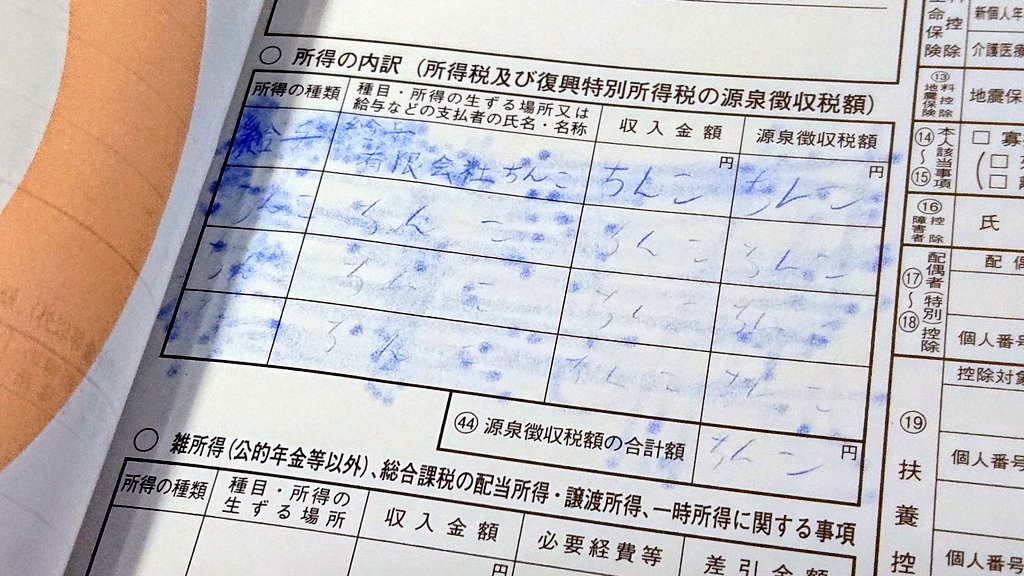 ○ 所得の内訳（所得税及び復興特別所得税の源泉徴収税額）
所得の種類
種目・所得の生ずる場所又は
給与などの支払者の氏名・名称
収入金額
源泉徴収税額
給与
給与
有限会社ちんこ
円
ちんこ
円
ちんこ
ちんこ
ちんこ
ちんこ
ちんこ
ちんこ
ちんこ
ちんこ
ちんこ
ちんこ
ちんこ
㊹ 源泉徴収税額の合計額
円
ちんこ
○ 雑所得(公的年金等以外)、総合課税の配当所得・譲渡所得、一時所得に関する事項
所得の種類
種目・所得の
生ずる場所
収入金額
必要経費等
差引金額
円
命保険
控除
新個人年
介護医療
⑬
地震保険料控除
地震保
⑭～⑮
本人該当事項
□
(□
□
⑯
障害者控除
氏
⑰～⑱
配偶者(特別)控除
配偶
個人番号
⑲
扶養控
控除対象
個人番号
個人番号